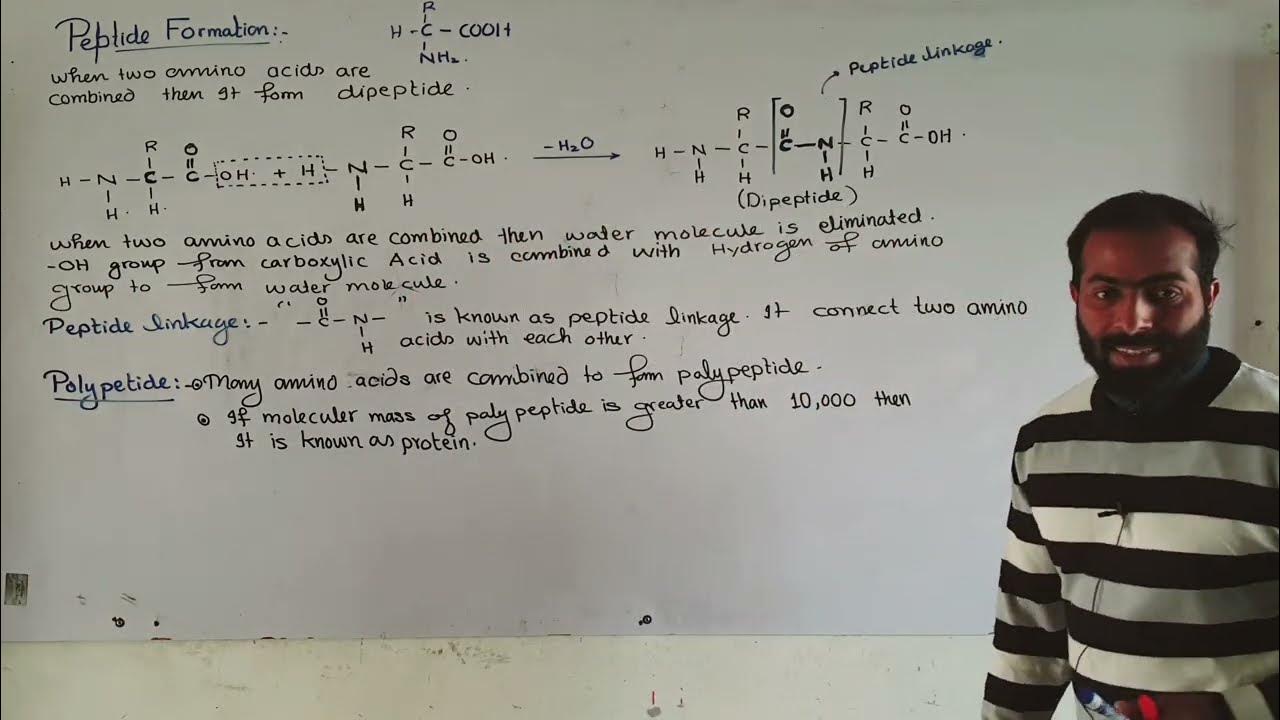 Peptide Formation:-
R
H - C - COOH
NH2.
when two amino acids are
combined then It form dipeptide.
Peptide linkage.
R O R O
H - N - C - C - OH + H - N - C - C - OH. -H2O → H - N - C - [C - N] - C - C - OH.
H. H. H H H H H H
(Dipeptide)
when two amino acids are combined then water molecule is eliminated.
-OH group from carboxylic Acid is combined with Hydrogen of amino
group to form water molecule.
Peptide linkage:- " - C - N - " is known as peptide linkage. It connect two amino
O
H acids with each other.
Polypetide:- Many amino acids are combined to form polypeptide.
If moleculer mass of polypeptide is greater than 10,000 then
It is known as protein.